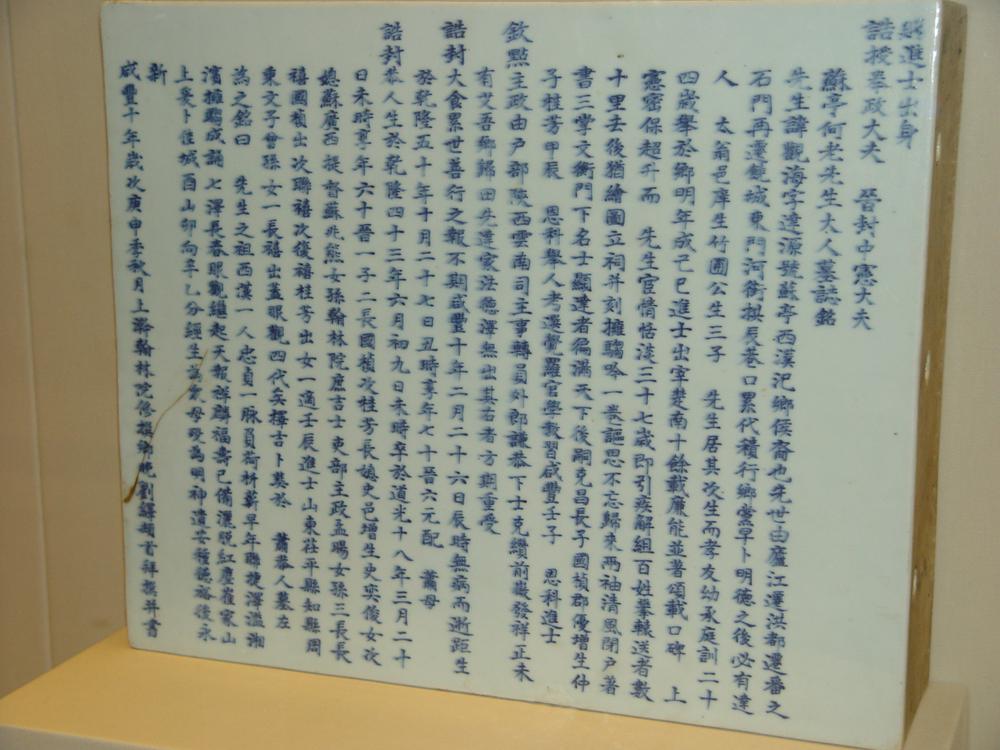 賜進士出身
誥授奉政大夫　晉封中憲大夫
蘇亭何老先生大人墓誌銘
先生諱觀海字達源號蘇亭西漢汜鄉侯裔也先世由廬江遷洪都遷番之
石門再遷饒城東門河街拱辰巷口累代積行鄉黨早卜明德之後必有達
人　太翁邑庠生竹圃公生三子　先生居其次生而孝友幼承庭訓二十
四歲舉於鄉明年成己巳進士出宰楚南十餘載廉能並著頌載口碑　上
憲密保超升而　先生宦情恬淡三十七歲即引疾解組百姓攀轅送者數
十里去後猶繪圖立祠并刻擁騶吟一卷謳思不忘歸來兩袖清風閉戶著
書三掌文衡門下名士顯達者徧滿天下後嗣克昌長子國楨郡優增生仲
子桂芳甲辰　恩科舉人考選覺羅官學教習咸豐壬子　恩科進士
欽點主政由戶部陝西雲南司主事轉員外郎謙恭下士克纘前徽發祥正未
有艾吾鄉歸田先達家法德澤無出其右者方期重受
誥封大食累世善行之報不期咸豐十年二月二十六日辰時無病而逝距生
於乾隆五十年十月二十七日丑時享年七十晉六元配　蕭母
誥封恭人生於乾隆四十三年六月初九日未時卒於道光十八年三月二十
日未時享年六十晉一子二長國楨次桂芳長媳史邑增生史奕俊女次
媳蘇廣西提督蘇兆熊女孫翰林院庶吉士吏部主政孟暘女孫三長長
禧國楨出次聯禧次復禧桂芳出女一適壬辰進士山東茌平縣知縣周
東文子曾孫女一長禧出蓋眼觀四代矣擇吉卜葬於　蕭恭人墓左
為之銘曰　先生之祖西漢一人忠貞一脈負荷析薪早年聯捷澤溢湘
濱擁騶成誦七澤長春眼觀繼起天報祥麟福壽已備灑脫紅塵崔家山
上爰卜佳城酉山卯向辛乙分經生為眾母歿為明神遺安種德裕後永
新
咸豐十年歲次庚申季秋月上澣翰林院修撰鄉晚劉繹頓首拜撰并書